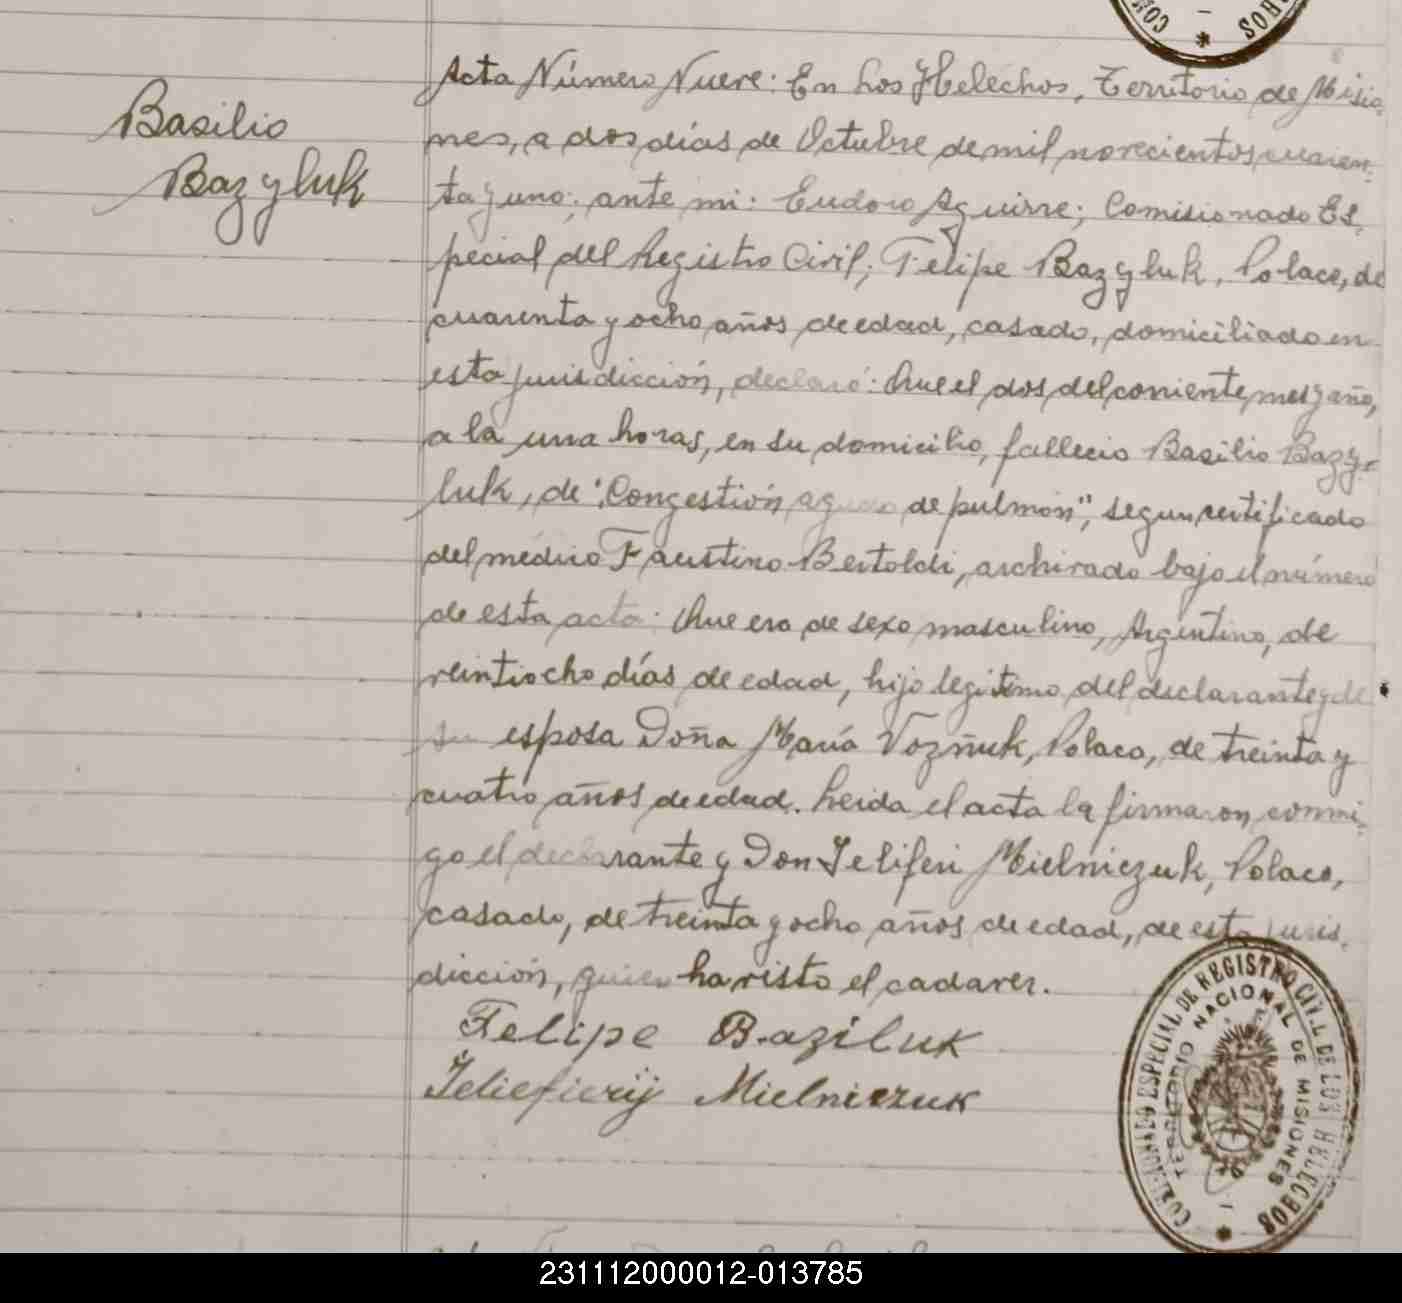 Basilio
Bazyluk
Acta Número Nueve: En Los Helechos, Territorio de Misio-
nes, a dos días de Octubre de mil novecientos cuaren-
ta y uno; ante mi: Eudoro Aguirre; Comisionado Es-
pecial del Registro Civil; Felipe Bazyluk, Polaco, de
cuarenta y ocho años de edad, casado, domiciliado en
esta jurisdicción, declaró: Que el dos del corriente mes y año,
a la una horas, en su domicilio, fallecio Basilio Bazy-
luk, de "Congestión aguda de pulmón", segun certificado
del médico Faustino Bertoldi, archivado bajo el número
de esta acta: Que era de sexo masculino, Argentino, de
veintiocho días de edad, hijo legitimo del declarante y de
su esposa Doña María Vozñuk, Polaca, de treinta y
cuatro años de edad. Leida el acta la firmaron conmi-
go el declarante y Don Jeliferi Mielniczuk, Polaco,
casado, de treinta y ocho años de edad, de esta juris-
dicción, quien ha visto el cadaver.
Felipe Baziluk
Jeliefierij Mielniczuk
COMISIONADO ESPECIAL DE REGISTRO CIVIL DE LOS HELECHOS
TERRITORIO NACIONAL DE MISIONES
231112000012-013785